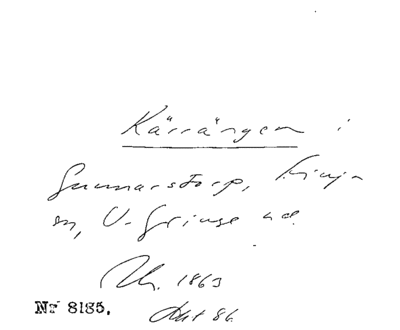 Kärrängen i
Gunnarstorp, Finja
sn, V. Göinge hd.
1863
Nr 8185. Akt 86.